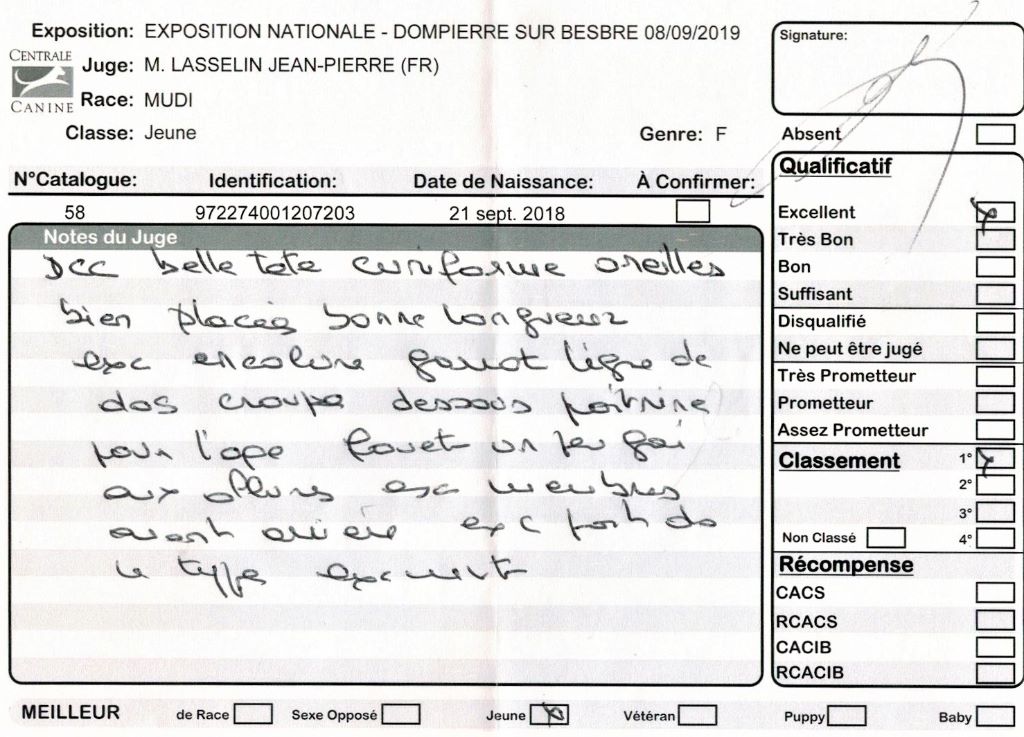 Exposition: EXPOSITION NATIONALE - DOMPIERRE SUR BESBRE 08/09/2019
CENTRALE
CANINE
Juge: M. LASSELIN JEAN-PIERRE (FR)
Race: MUDI
Classe: Jeune Genre: F
N°Catalogue: Identification: Date de Naissance: À Confirmer:
58 972274001207203 21 sept. 2018
Notes du Juge
DCC belle tete cuniforme oreilles
bien placés bonne longueur
exc encolure garrot ligne de
dos croupe dessous poitrine
pour l'age fouet un peu gai
aux allures exc membres
avant arriere exc
type exc
Signature:
Absent
Qualificatif
Excellent
Très Bon
Bon
Suffisant
Disqualifié
Ne peut être jugé
Très Prometteur
Prometteur
Assez Prometteur
Classement 1°
2°
3°
Non Classé 4°
Récompense
CACS
RCACS
CACIB
RCACIB
MEILLEUR de Race Sexe Opposé Jeune Vétéran Puppy Baby